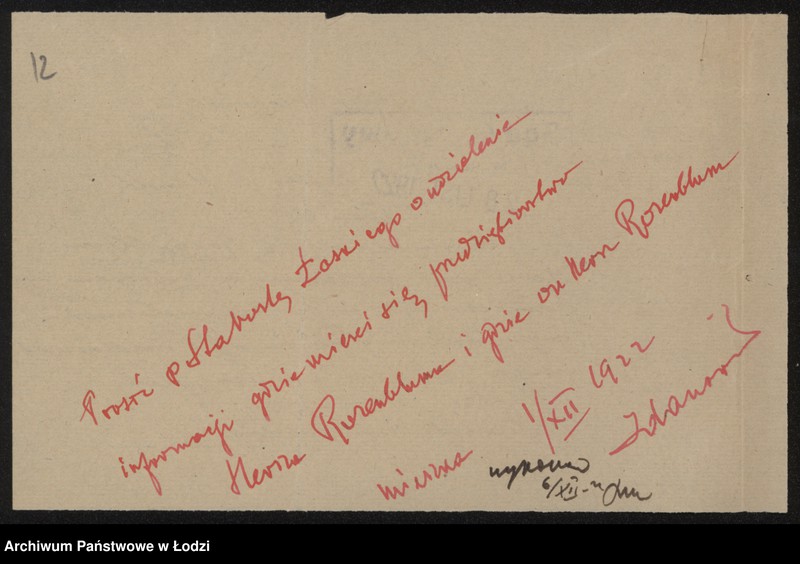 12
Prosić p Starostę Łaskiego o udzielenie
informacji gdzie mieści się przedsiębiorstwo
Hersza Rozenbluma i gdzie on Hersz Rozenblum
mieszka
1/XII 1922
wykonano
6/XII
Archiwum Państwowe w Łodzi